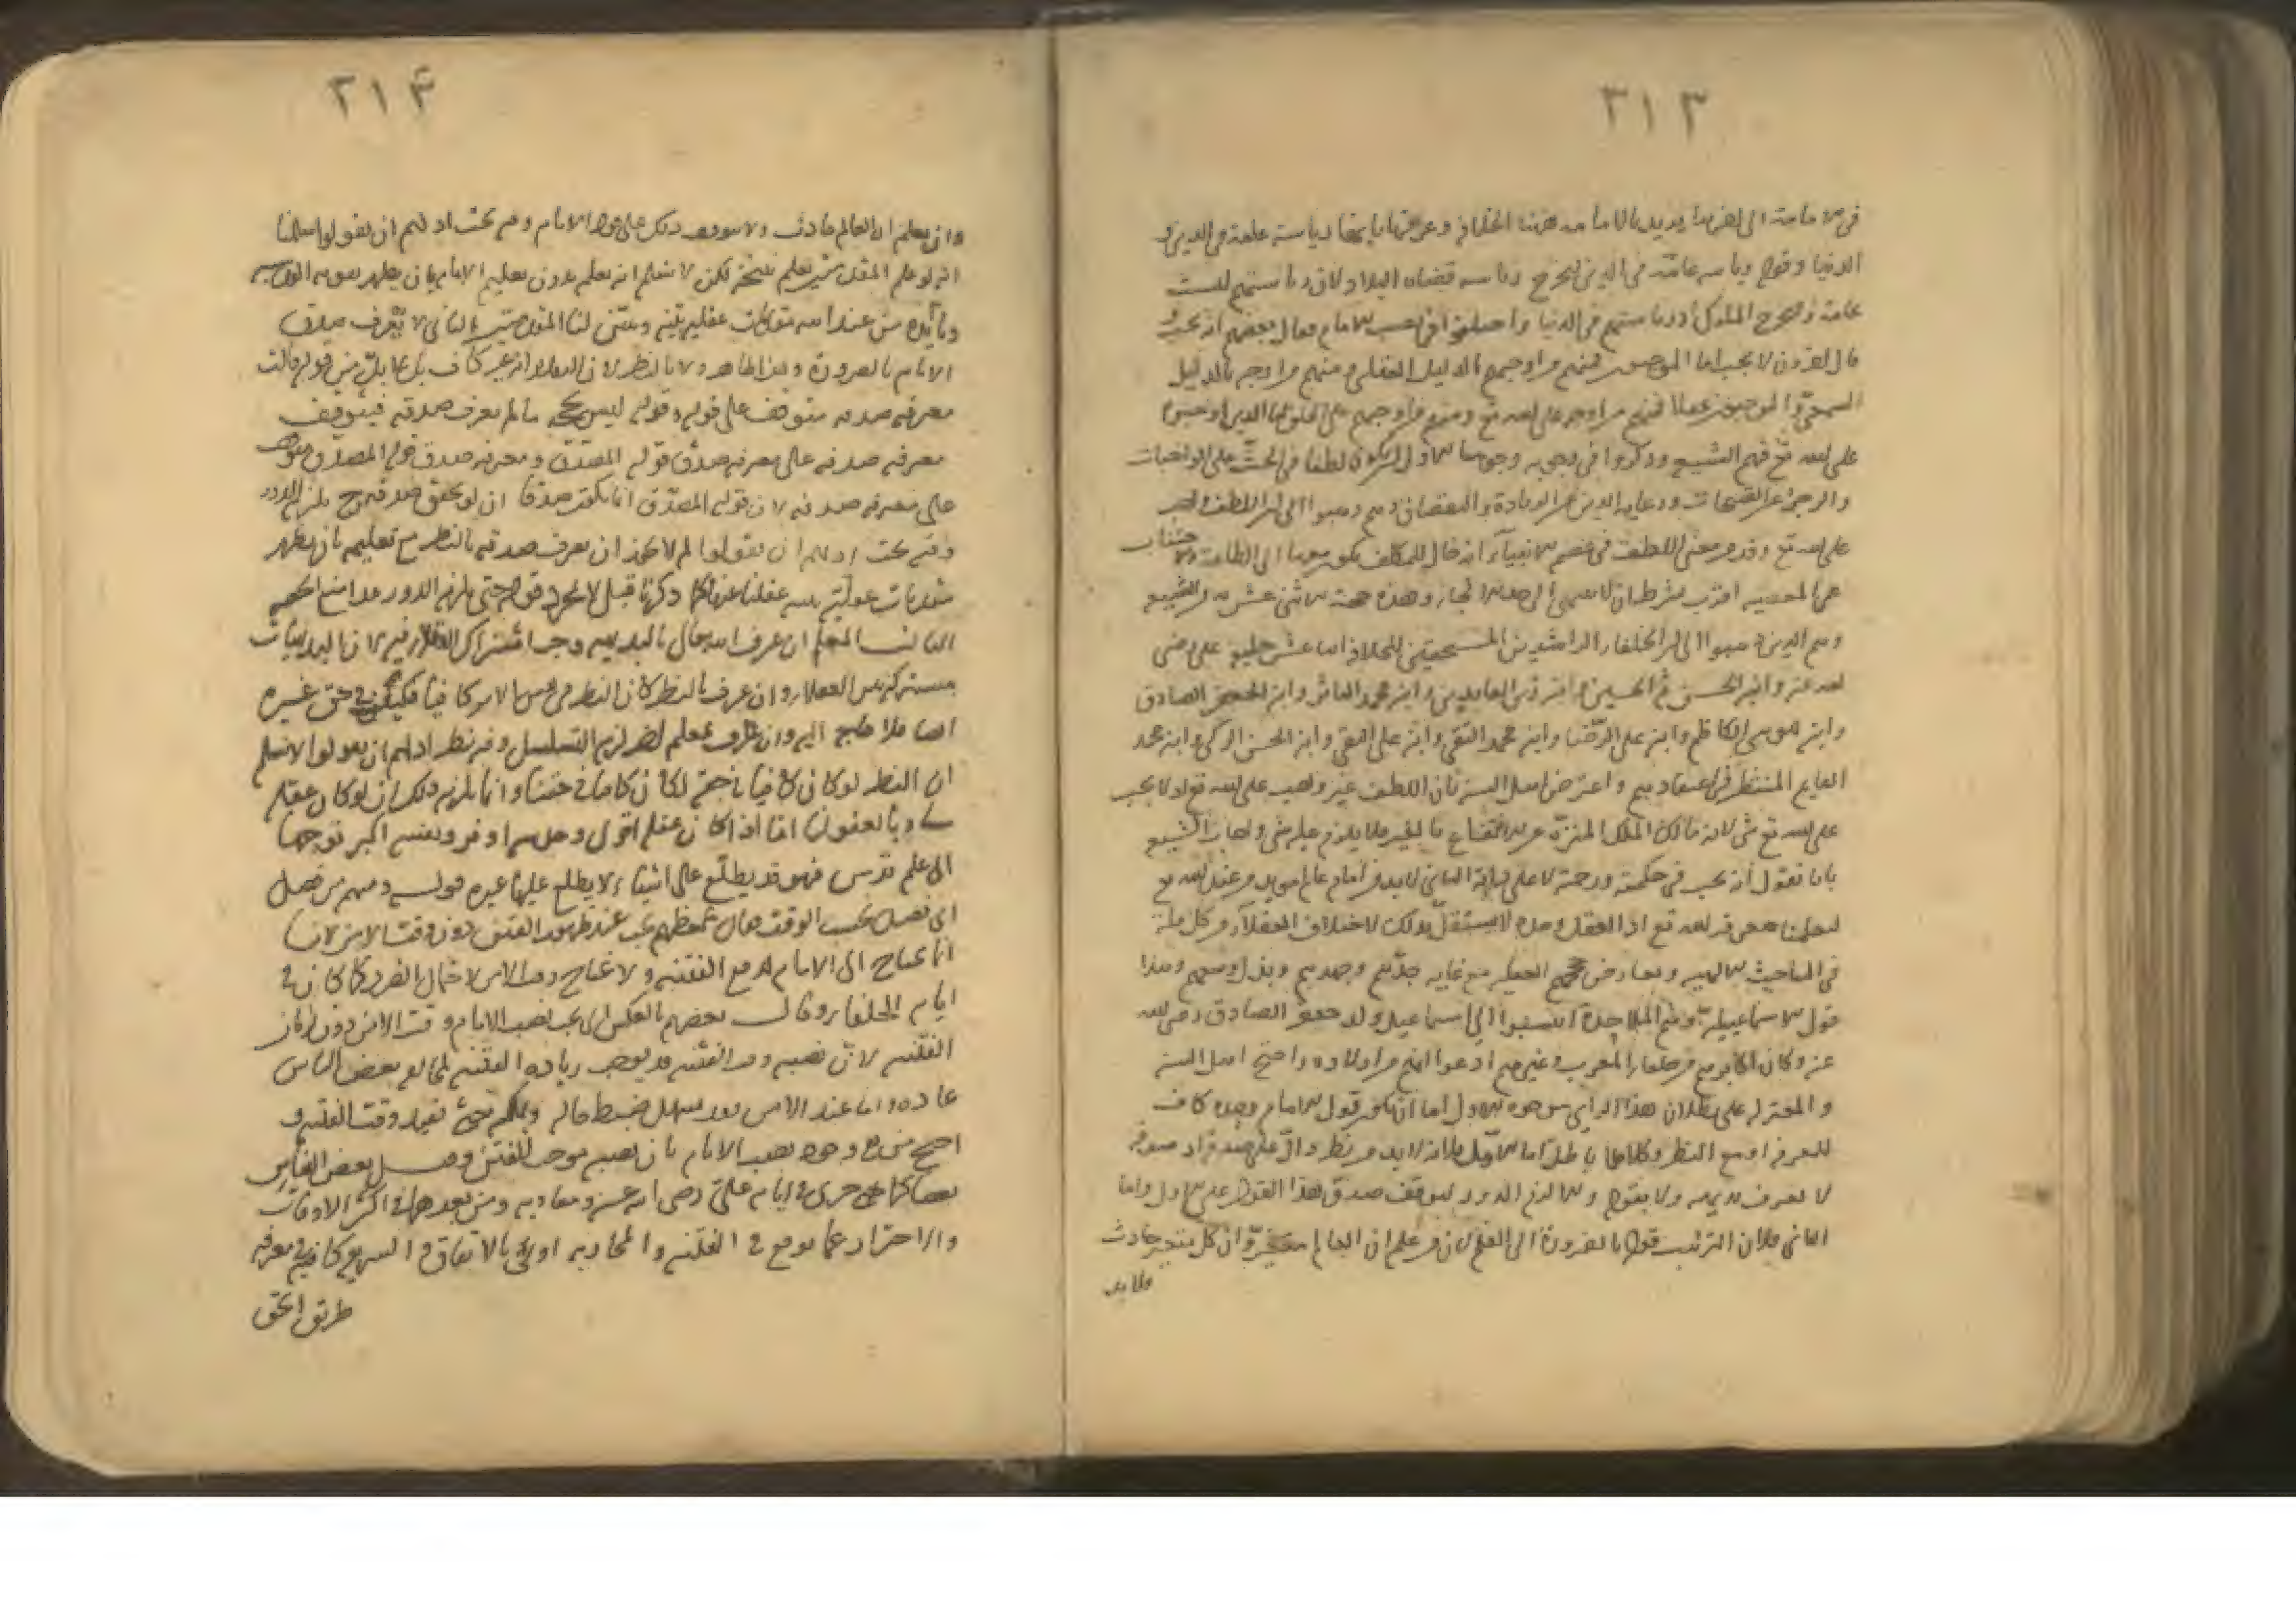 ٣١٣
في الامامة الى اخره يريد بالامامة هنا الخلافة وعرفها بانها رياسة عامة في الدين و
الدنيا وقوله رياسة عامة في الدين ليخرج رياسة قضاة البلاد لان رياستهم ليست
عامة وليخرج الملوك اذ رياستهم في الدنيا واختلفوا في نصب الامام فقال بعضهم انه يجب و
قال اخرون لا يجب اما الموجبون فمنهم من اوجبه بالدليل العقلي ومنهم من اوجبه بالدليل
السمعي والموجبون عقلا فمنهم من اوجبه على الله تع ومنهم من اوجبه على الخلق اما الذين اوجبوا
على الله تع فهم الشيعة وذكروا في وجوبه وجوها الاول ليكون لطفا في الحث على الواجبات
والزجر عن القبحات ورعاية الدين عن الزيادة والنقصان وهم ذهبوا الى ان اللطف واجب
على الله تع وقد مر معنى اللطف في عصمة الانبياء انه حال للمكلف يكون معها الى الطاعة والاجتناب
عن المعصية اقرب بشرط ان لا ينتهي الى حد الالجاء وهذه حجة الاثنى عشرية من الشيعة
وهم الذين ذهبوا الى ان الخلفاء الراشدين المستحقين للخلافة اثنا عشر خليفة علي رضي
الله عنه وابنه الحسن ثم الحسين وابنه زين العابدين وابنه محمد الباقر وابنه الجعفر الصادق
وابنه موسى الكاظم وابنه علي الرضا وابنه محمد التقي وابنه علي النقي وابنه الحسن الزكي وابنه محمد
القايم المنتظر في اعتقادهم واعترض اهل السنة بان اللطف غير واجب على الله تع اذ لا يجب
على الله تع شي لانه مالك الملك المنزه عن الانتفاع بالغير فلا يلزم عليه شي واجاب الشيعة
بانا نقول انه يجب في حكمته ورحمته لا على الثاني لا بد من امام عالم مؤيد من عند الله تع
ليعلمنا معرفة الله تع اذ العقل وحده لا يستقل بذلك لاختلاف العقلاء من كل ملة
في المباحث الالهية وتعارض حججهم العقلية مع غاية جدهم وجهدهم وبذل وسعهم وهذا
قول الاسماعيلية وهم الملاحدة انتسبوا الى اسماعيل ولد جعفر الصادق رضي الله
عنه وكان اكابرهم من خلفاء المغرب وغيرهم ادعوا انهم من اولاده واحتج اهل السنة
والمعتزلة على بطلان هذا الراي بوجوه الاول اما ان يكون قول الامام وحده كاف
للمعرفة او مع النظر وكلاهما باطل اما الاول فلانه لا بد من نظر دال على صدقه اذ صدقه
لا يعرف بديهة ولا بقوله والا لزم الدور ليوقف صدق هذا القول على الاول واما
الثاني فلان الترتيب قول بالضرورة الى العلم لان من علم ان العالم متغير وان كل متغير حادث
فلا بد
٣١۴
وان يعلم ان العالم حادث ولا يتوقف ذلك على قول الامام وهم تحت اذ لهم ان يقولوا سلمنا
انه لو علم المقدمتين يعلم نتيجة لكن لا نسلم انه يعلم بدون تعليم الامام بان يظهر بقوته القدسية
وتأيده من عند الله مقدمات عقلية يقينية وبين لنا المقدمتين الثاني لا يعرف صدق
الامام بالضرورة وهذا ظاهر ولا بالنظر لان العقل غير كاف بل بما من قوله قالت
معرفة صدقه متوقف على قوله وقوله ليس بحجة ما لم يعرف صدقه فيتوقف
معرفة صدقه على معرفة صدق قوله المصدق ومعرفة صدق قوله المصدق موقوفة
على معرفة صدقه لان قوله المصدق انما يكون صدقا ان لو تحقق صدقه وح يلزم الدور
وفيه بحث اذ لهم ان يقولوا لم لا يجوز ان يعرف صدقه بالنظر مع تعليمه بان يظهر
مقدمات عقلية عقلنا عنها كما ذكرنا قبل لا بمجرد قوله حتى يلزم الدور هذا منع الحجة
الثالث المعلم ان عرف الله تعالى بالبديهة وجب اشتراك العقلاء فيه لان البديهيات
مشتركة بين العقلاء وان عرف بالنظر كان النظر في نفس الامر كافيا فيكفي في حق غيره
ايضا فلا حاجة اليه وان عرف بمعلم اخر لزم التسلسل وفيه نظر اذ لهم ان يقولوا لا نسلم
ان النظر لو كان كافيا في حقه لكان كافيا في حقنا وانما يلزم ذلك ان لو كان عقله
مساويا لعقولنا اما اذا كان عقله اقوى وحدسه اوفر ونفسه اكبر توجها
الى علم قدس فهو قد يطلع على اشياء لا يطلع عليها غيره قوله ومنهم من فصل
اى فصل بحسب الوقت فقال بعضهم يجب عند ظهور الفتن دون وقت الامن لانا
انما نحتاج الى الامام لدفع الفتنة ولا نحتاج وقت الامن لاحتمال الضرر كما كان في
ايام الخلفاء وقال بعضهم بالعكس اى يجب نصب الامام وقت الامن دون زمان
الفتنة لان نصبه وقت الفتنة قد يوجب زيادة الفتنة لمخالفة بعض الناس
عادة واما عند الامن فقد يسهل ضبط حاله وتحكم بعيد وقت الفتنة و
احتج من منع وجوب نصب الامام بان نصبه موجب للفتن وقتل بعض الناس
بعضا كما جرى في ايام علي رضي الله عنه ومعاوية ومن بعدهما في اكثر الاوقات
والاحتراز عما يوقع في الفتنة والمحاربة اولى بالاتفاق والشريع كاف في معرفة
طريق الحق